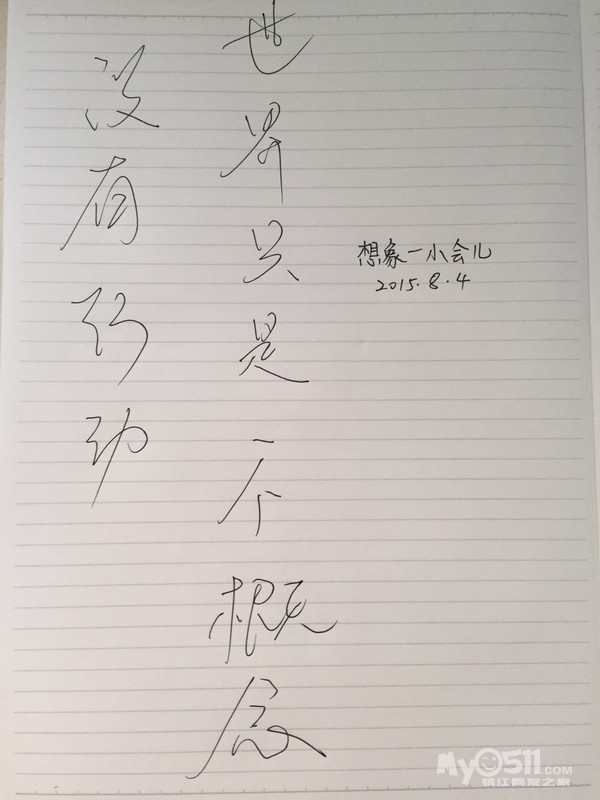 没有行动
世界只是一个概念
想象一小会儿
2015.8.4
My0511.COM
镇江网友之家